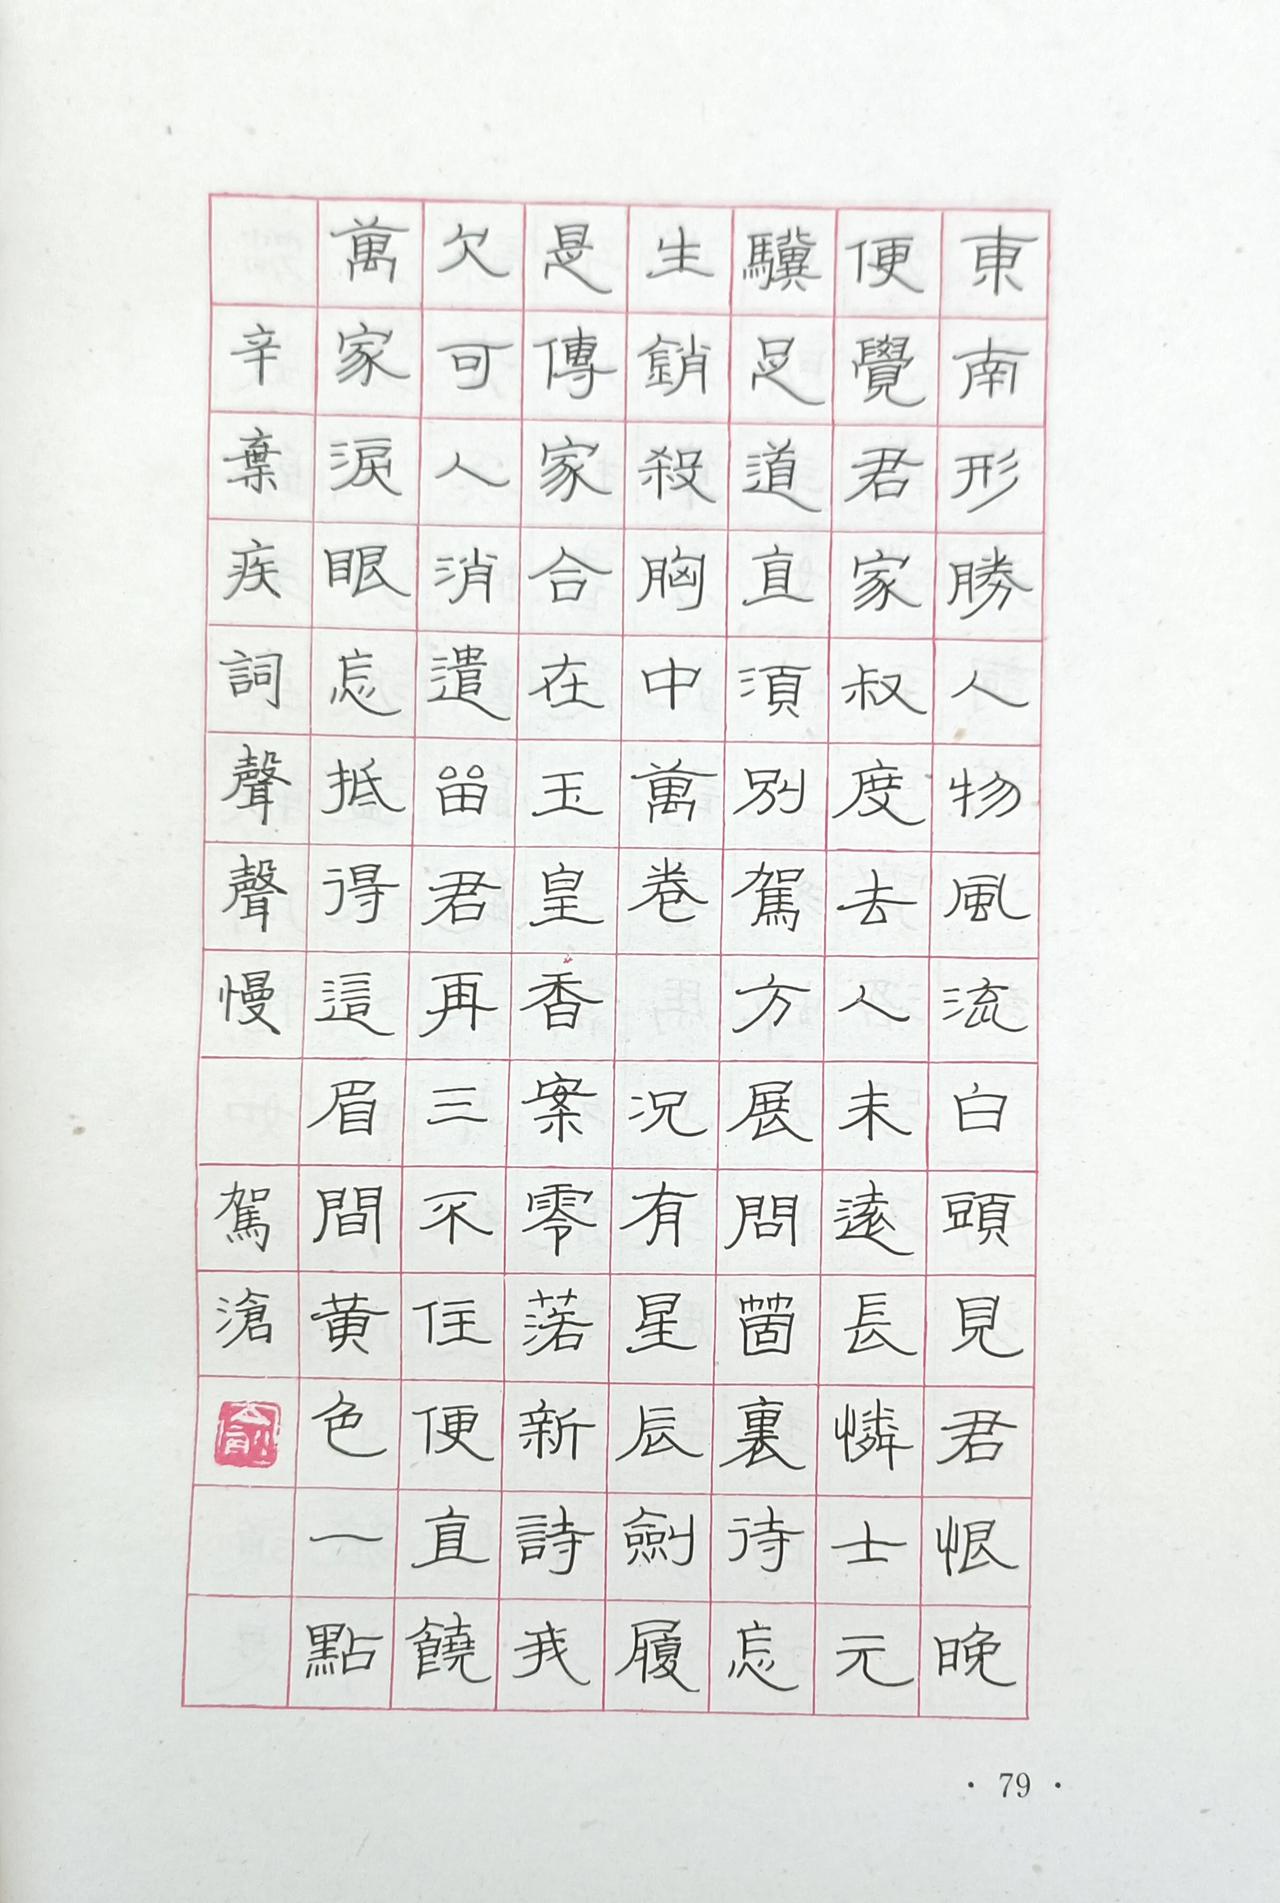 東南形勝人物風流白頭見君恨晚
便覺君家叔度去人未遠長憐士元
驥足道直須別駕方展問箇裏待怎
生銷殺胸中萬卷 況有星辰劍履
是傳家合在玉皇香案零落新詩我
欠可人消遣留君再三不住便直饒
萬家淚眼怎抵得這眉間黃色一點
辛棄疾詞聲聲慢 駕滄
· 79 ·